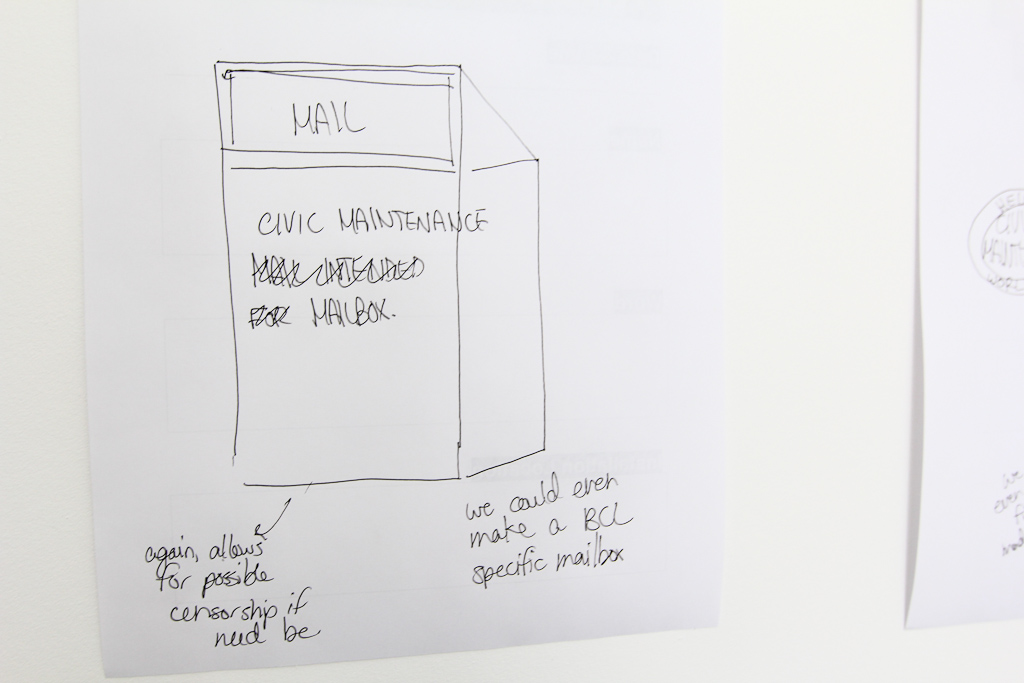 MAIL
CIVIC MAINTENANCE
MAILBOX.
again, allows
for possible
censorship if
need be
we could even
make a BCL
specific mailbox